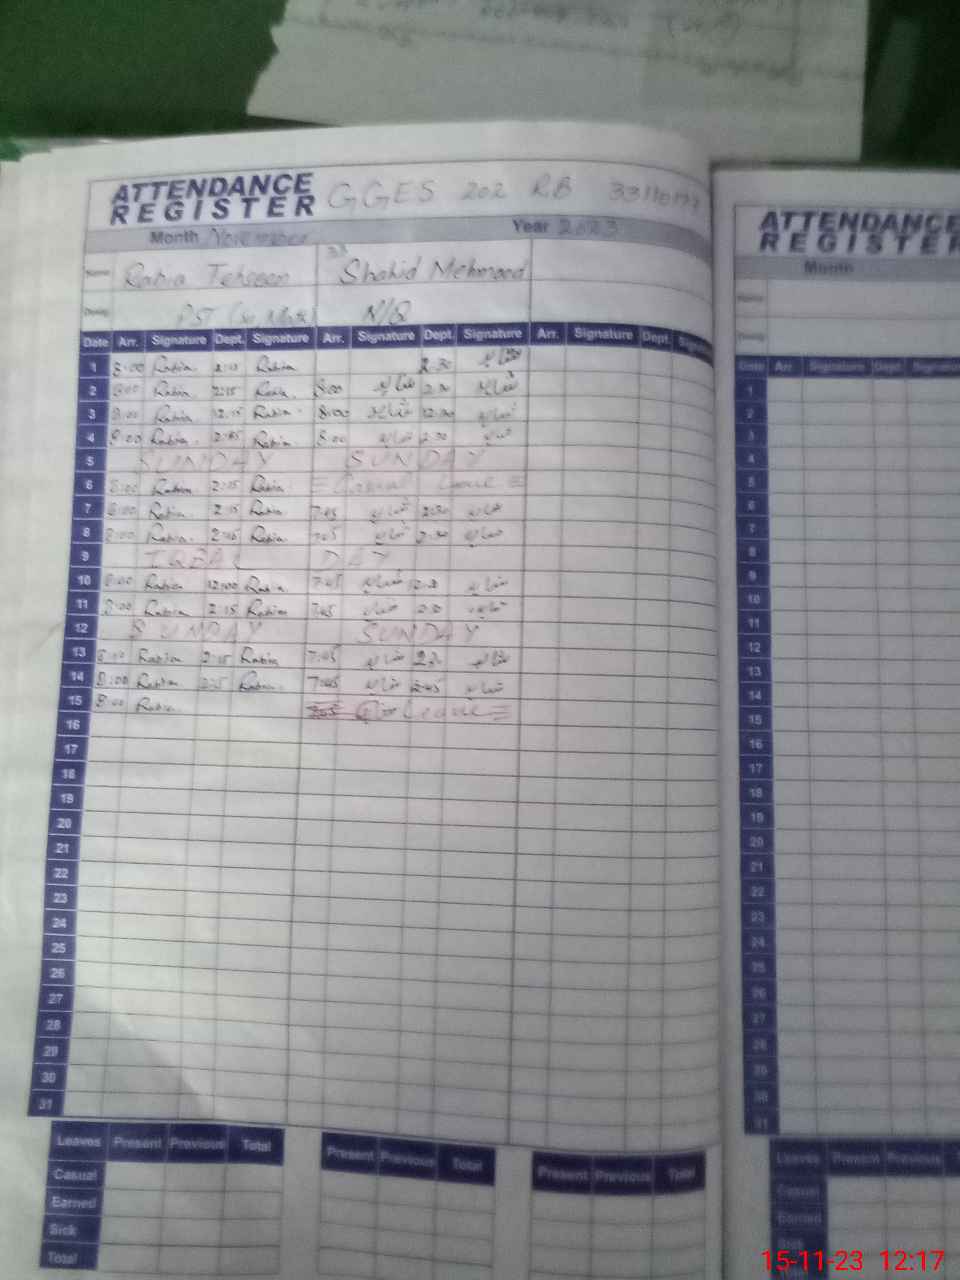 ATTENDANCE
REGISTER GGES 202 RB
Month November Year 2023
Name Rabia Tehseen Shahid Mehmood
Desig N/Q
Date Arr. Signature Dept. Signature Arr. Signature Dept. Signature Arr. Signature Dept.
1 8:00 Rabia Rabia 2:30 شاہد
2 8:00 Rabia 2:15 Rabia 8:00 شاہد 2:30 شاہد
3 8:00 Rabia 12:15 Rabia 8:00 شاہد 12:30 شاہد
4 8:00 Rabia 2:15 Rabia 8:00 شاہد 2:30 شاہد
5 SUNDAY SUNDAY
6 8:00 Rabia 2:15 Rabia Casual Leave
7 8:00 Rabia 2:15 Rabia 7:45 شاہد 2:30 شاہد
8 8:00 Rabia 2:15 Rabia 7:45 شاہد 2:30 شاہد
9 IQBAL DAY
10 8:00 Rabia 12:00 Rabia 7:45 شاہد شاہد
11 8:00 Rabia 2:15 Rabia 7:45 شاہد 2:30 شاہد
12 SUNDAY SUNDAY
13 8:00 Rabia 2:15 Rabia 7:45 شاہد شاہد
14 8:00 Rabia 2:15 Rabia 7:45 شاہد 2:45 شاہد
15 8:00 Rabia Leave
16
17
18
19
20
21
22
23
24
25
26
27
28
29
30
31
Leaves Present Previous Total Present Previous Total Present Previous Total
Casual
Earned
Sick
Total
ATTENDANCE
REGISTER
Month
Name
Desig
Date Arr. Signature Dept. Signature
1
2
3
4
5
6
7
8
9
10
11
12
13
14
15
16
17
18
19
20
21
22
23
24
25
26
27
28
29
30
31
Leaves Present Previous
Casual
Earned
Sick
15-11-23 12:17